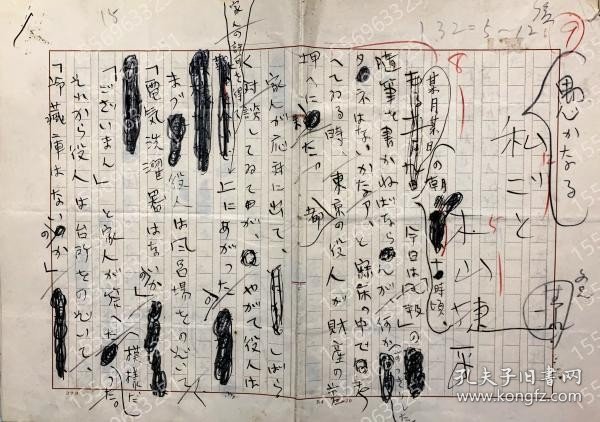 15
132=5-12
愚かなる
私ごと
木山捷平
某月某日の朝 十時頃、
今日は「風報」の
随筆を書かねばならんが、何か
タネはないかなア、と寐床の中で考
へてゐる時、東京の役人が財産の差
押へに来た。
家人が応対に出て、しばら
く対談してゐたが、やがて役人は
上にあがつた
まづ役人は風呂場をのぞいて
「電気洗濯器はないのか」
「ございません」と家人が答へた模様だつた。
それから役人は台所をのぞいて、
「冷蔵庫はないのか」
孔夫子旧书网
kongfz.com